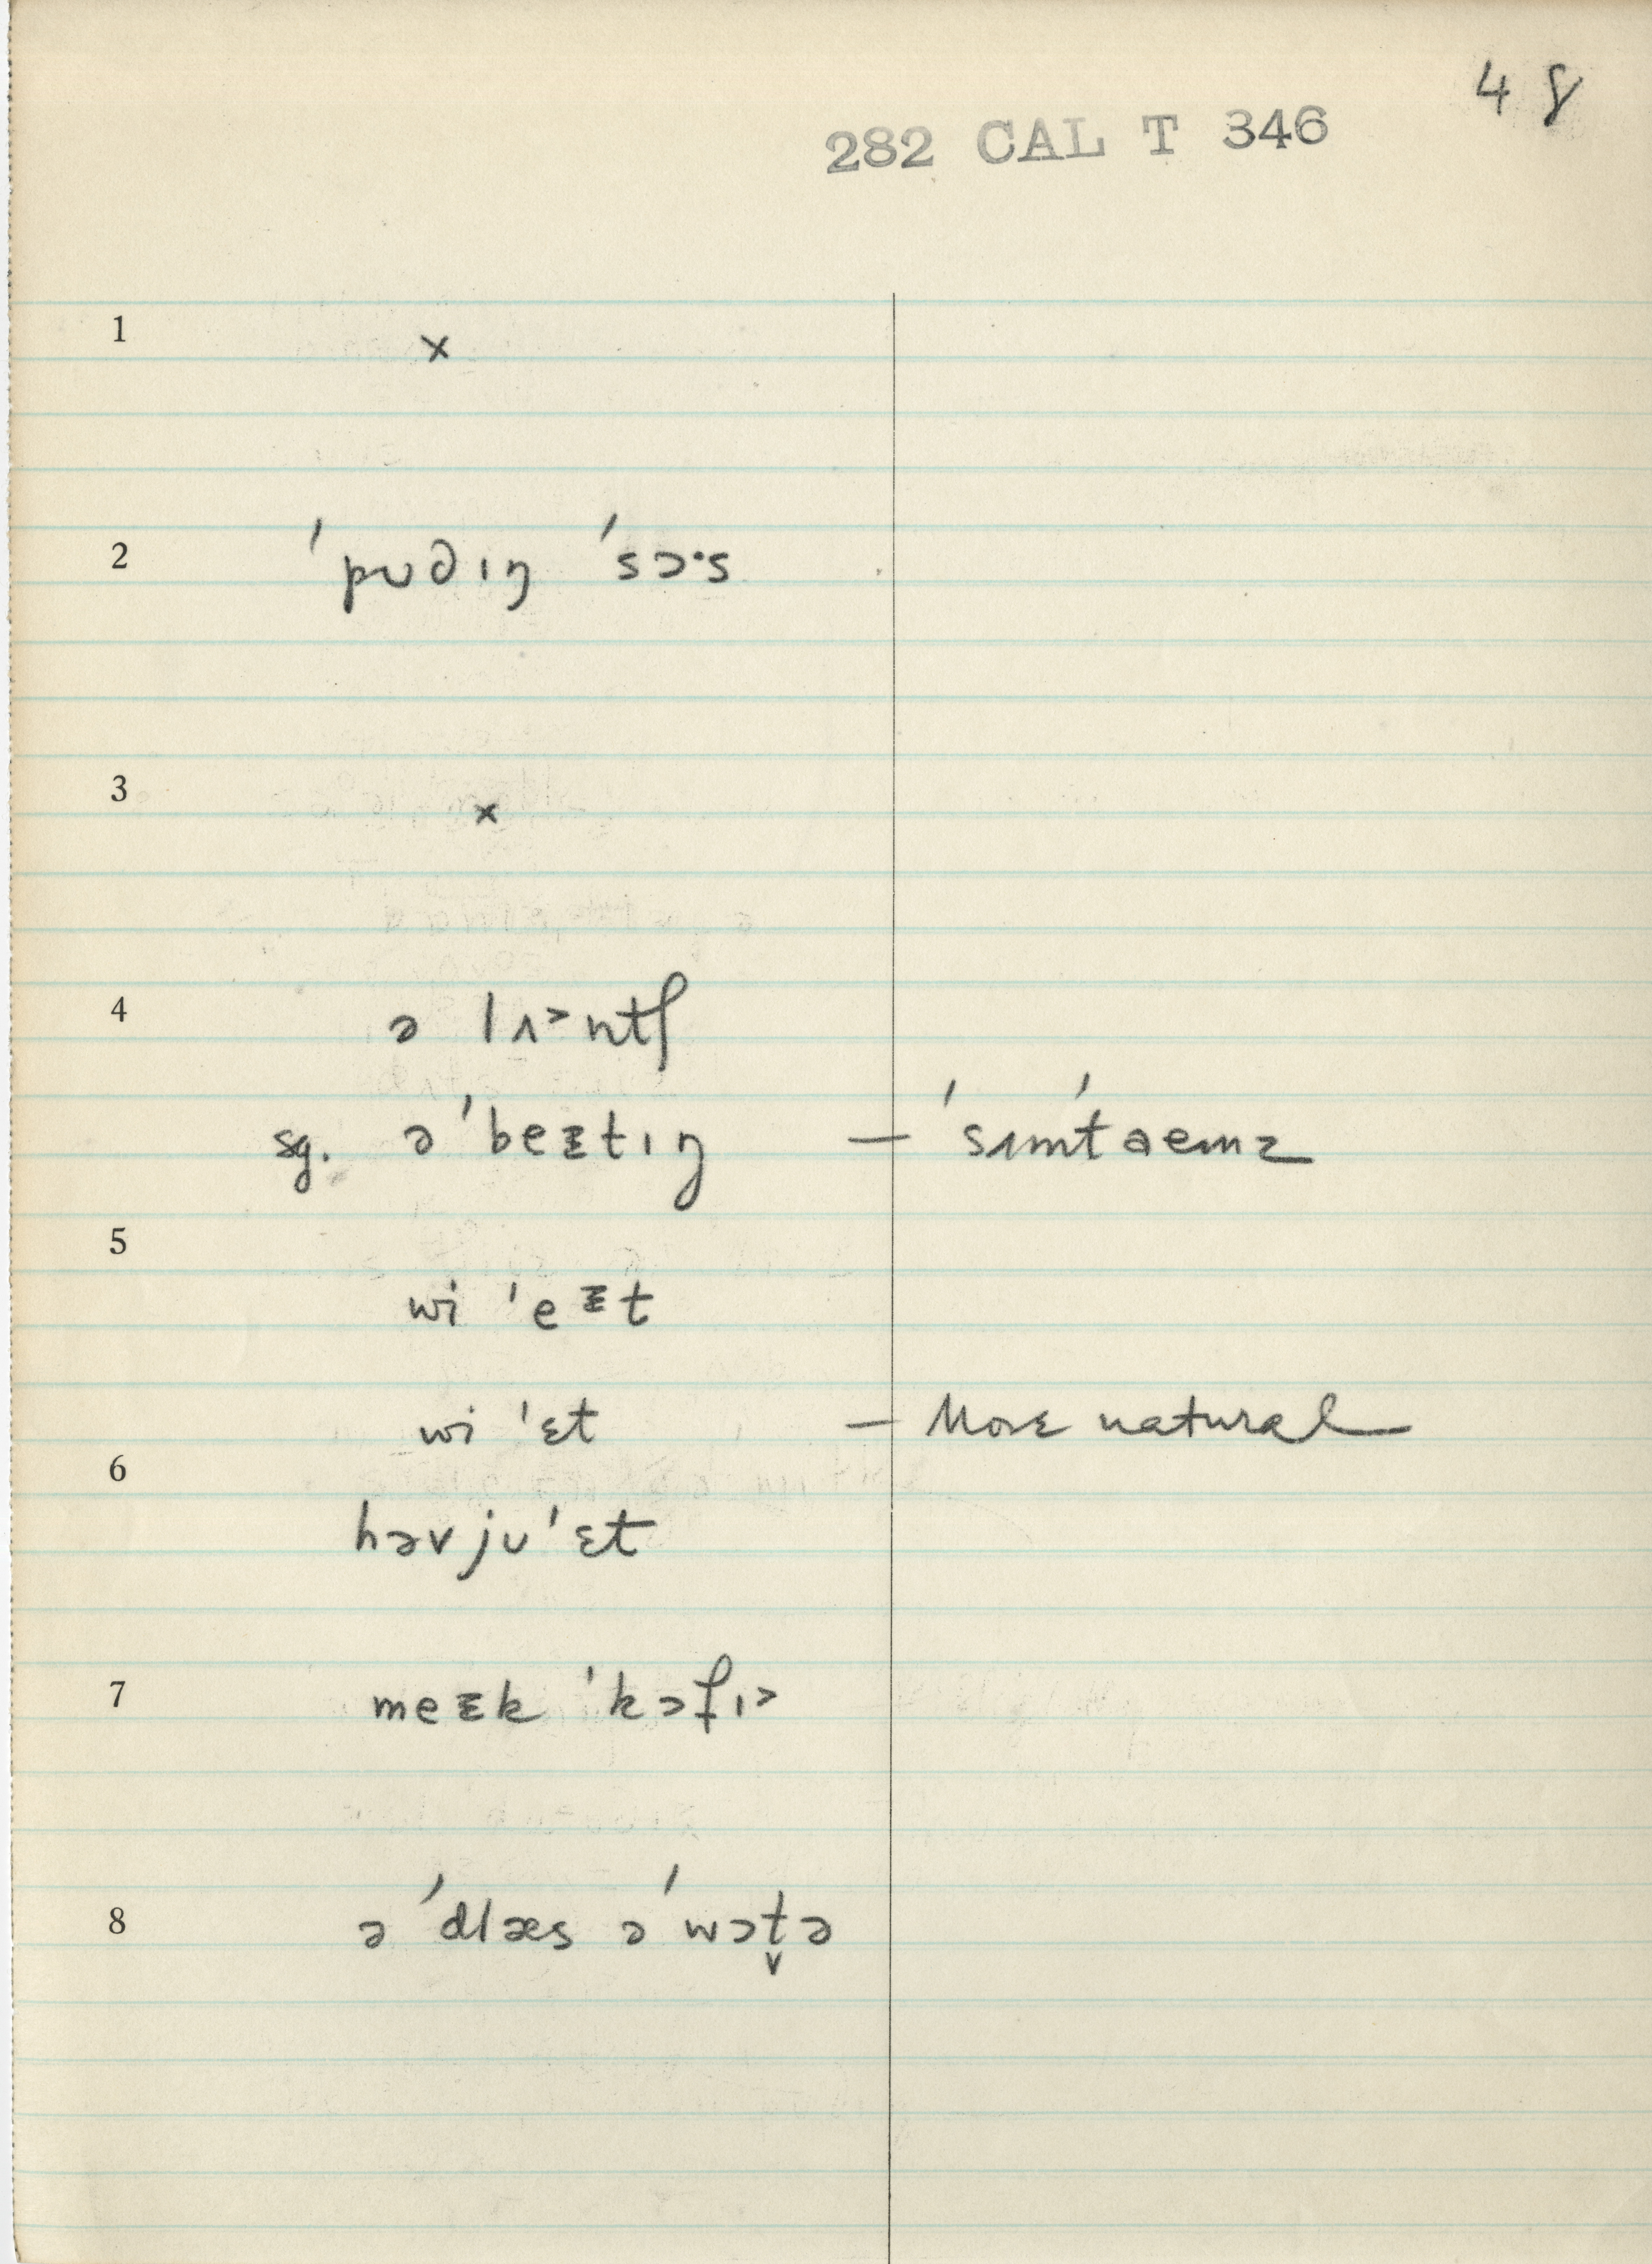 48
282 CAL T 346
1 x
2 ˈpʊdɪŋ ˈsɔ·s
3 x
4 ə lʌ˃ntʃ
sg. ə ˈbeᵻtɪŋ — ˈsʌmˈtaemz
5
wi ˈeᵻt
wi ˈɛt — More natural
6
həv jʊ ˈɛt
7 meᵻk ˈkɔfɪ˃
8 ə ˈdlæs ə ˈwɔt̬ə